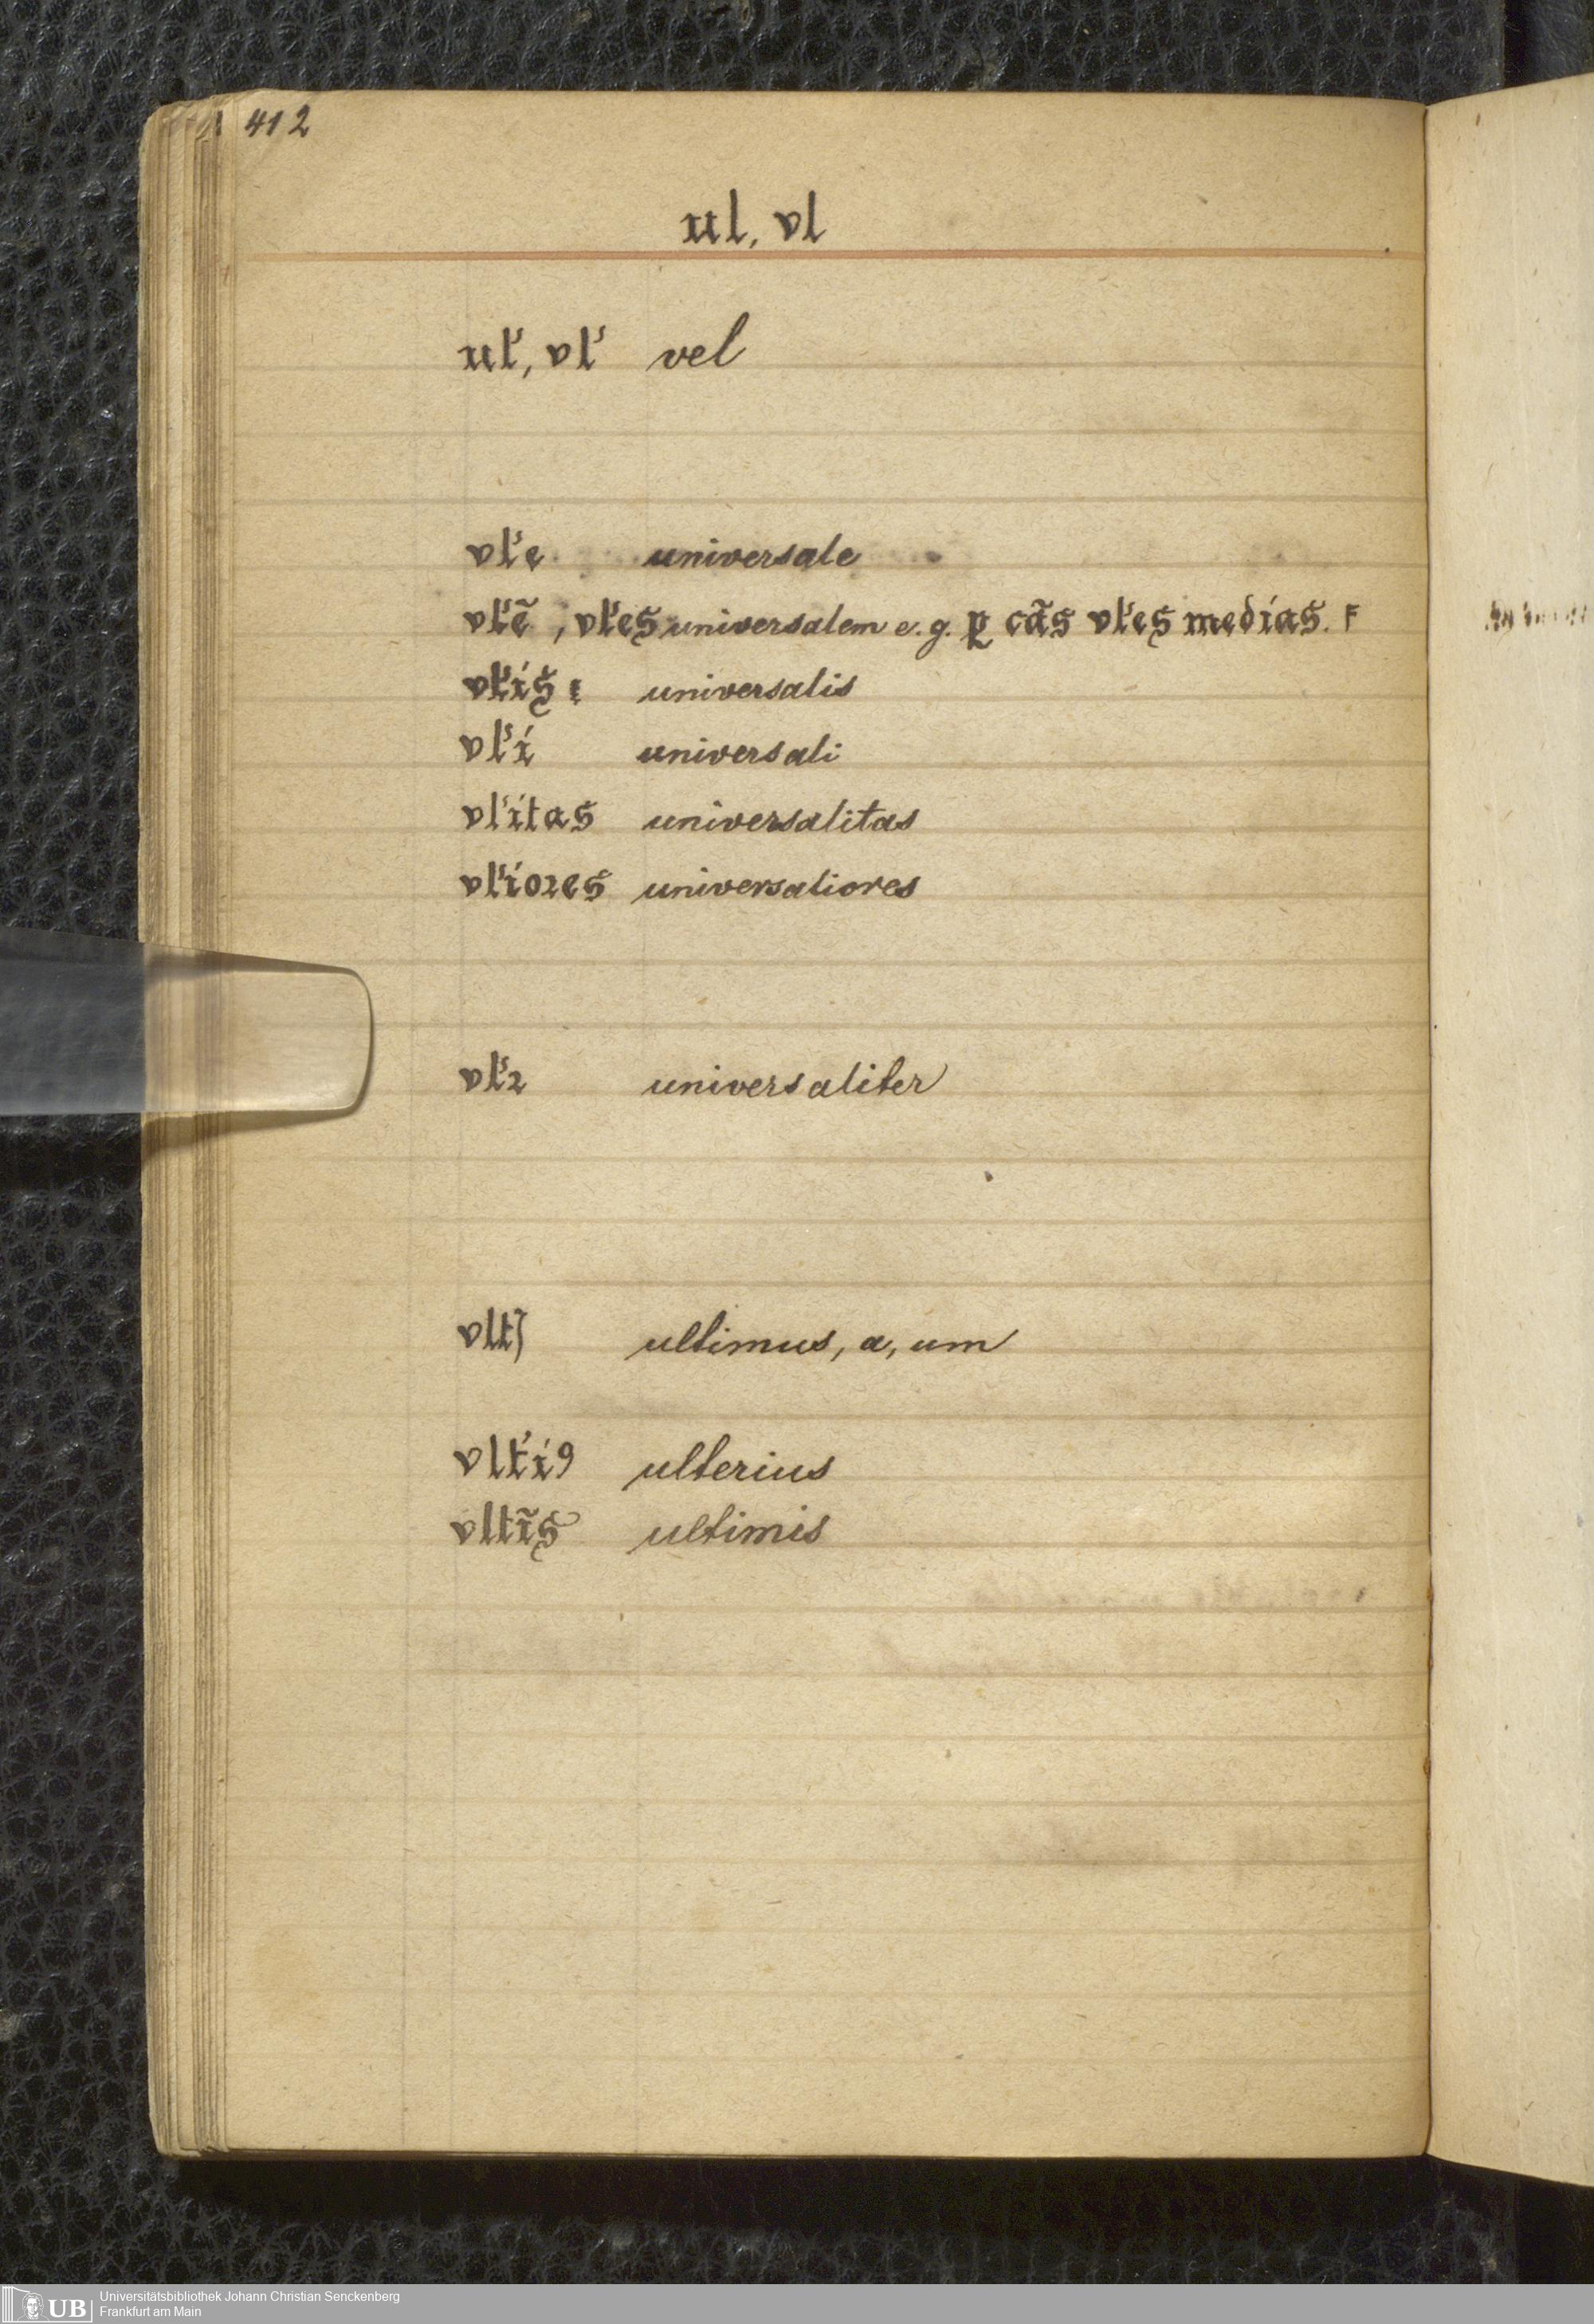 412
ul, vl
ul', vl' vel
vl'e universale
vl'ẽ, vl'es universalem e. g. ꝑ cãs vl'es medías. F
vl'is universalis
vl'i universali
vl'itas universalitas
vl'ioꝛes universaliores
vl'ꝛ universaliter
vltʒ ultimus, a, um
vlt'iꝯ ulterius
vltĩs ultimis
UB Universitätsbibliothek Johann Christian Senckenberg
Frankfurt am Main